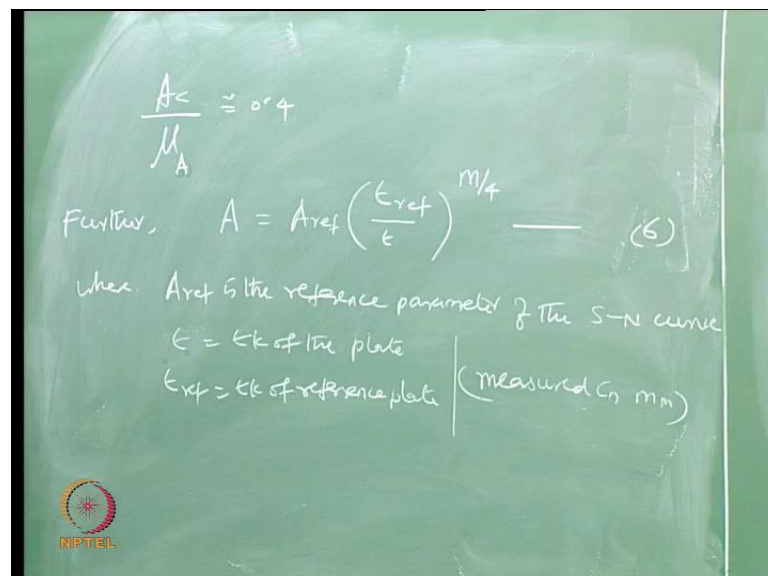 Ac
—— ≅ 0.4
μ_A
Further, A = Aref (tref / t)^m/4 —— (6)
where Aref is the reference parameter of the S-N curve
t = tk of the plate
tref = tk of reference plate | (measured in mm)
NPTEL